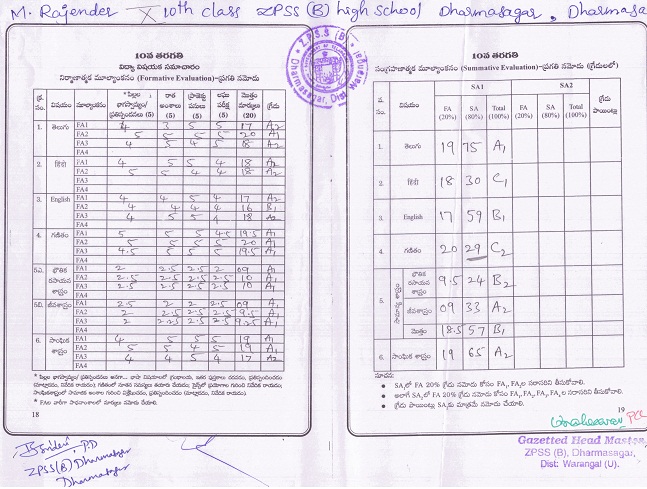 M. Rajender X 10th class ZPSS (B) high School Dharmasagar, Dharmasa
Z.P.S.S (B)
Dharmasagar, Dist: Warangal
10వ తరగతి
విద్యా విషయక సమాచారం
నిర్మాణాత్మక మూల్యాంకనం (Formative Evaluation)-ప్రగతి నమోదు
క్ర. సం. విషయం మూల్యాంకనం * పిల్లల భాగస్వామ్యం/ ప్రతిస్పందనలు (5) రాత అంశాలు (5) ప్రాజెక్టు పనులు (5) లఘు పరీక్ష (5) మొత్తం మార్కులు (20) గ్రేడు
1. తెలుగు FA1 4 3 5 5 17 A2
FA2 5 5 5 5 20 A1
FA3 4 5 4 5 18 A2
FA4
2. हिंदी FA1 4 5 5 4 18 A2
FA2 5 5 4 4 18 A2
FA3
FA4
3. English FA1 4 4 5 4 17 A2
FA2 4 4 4 4 16 B1
FA3 4 5 5 4 18 A2
FA4
4. గణితం FA1 5 5 5 4.5 19.5 A1
FA2 5 5 5 5 20 A1
FA3 4.5 5 5 5 19.5 A1
FA4
5ఎ. భౌతిక రసాయన శాస్త్రం FA1 2 2.5 2.5 2 09 A1
FA2 2.5 2.5 2.5 2.5 10 A1
FA3 2.5 2.5 2.5 2.5 10 A1
FA4
5బి. జీవశాస్త్రం FA1 2.5 2 2 2.5 09 A1
FA2 2 2.5 2.5 2.5 9.5 A1
FA3 2 2.5 2.5 9.25 A1
FA4
6. సాంఘిక శాస్త్రం FA1 4 5 5 5 19 A1
FA2 5 5 4 5 19 A1
FA3 4 4 5 4 17 A2
FA4
18
P.D
ZPSS(B) Dharmasagar
Dharmasagar
10వ తరగతి
సంగ్రహణాత్మక మూల్యాంకనం (Summative Evaluation)-ప్రగతి నమోదు (గ్రేడులలో)
వ. సం. విషయం SA1 SA2 గ్రేడు పాయింట్లు
FA (20%) SA (80%) Total (100%) FA (20%) SA (80%) Total (100%)
1. తెలుగు 19 75 A1
2. हिंदी 18 30 C1
3. English 17 59 B1
4. గణితం 20 29 C2
5. సామాన్య శాస్త్రం భౌతిక రసాయన శాస్త్రం 9.5 24 B2
జీవశాస్త్రం 09 33 A2
మొత్తం 18.5 57 B1
6. సాంఘిక శాస్త్రం 19 65 A2
సూచన:
● SA1లో FA 20% గ్రేడు నమోదు కోసం FA1, FA2ల సరాసరిని తీసుకోవాలి.
● అలాగే SA2లో FA 20% గ్రేడు నమోదు కోసం FA1, FA2, FA3, FA4 ల సరాసరిని తీసుకోవాలి.
● గ్రేడు పాయింట్లు SA2కు మాత్రమే నమోదు చేయాలి.
19
Gazetted Head Master
ZPSS (B), Dharmasagar,
Dist: Warangal (U).